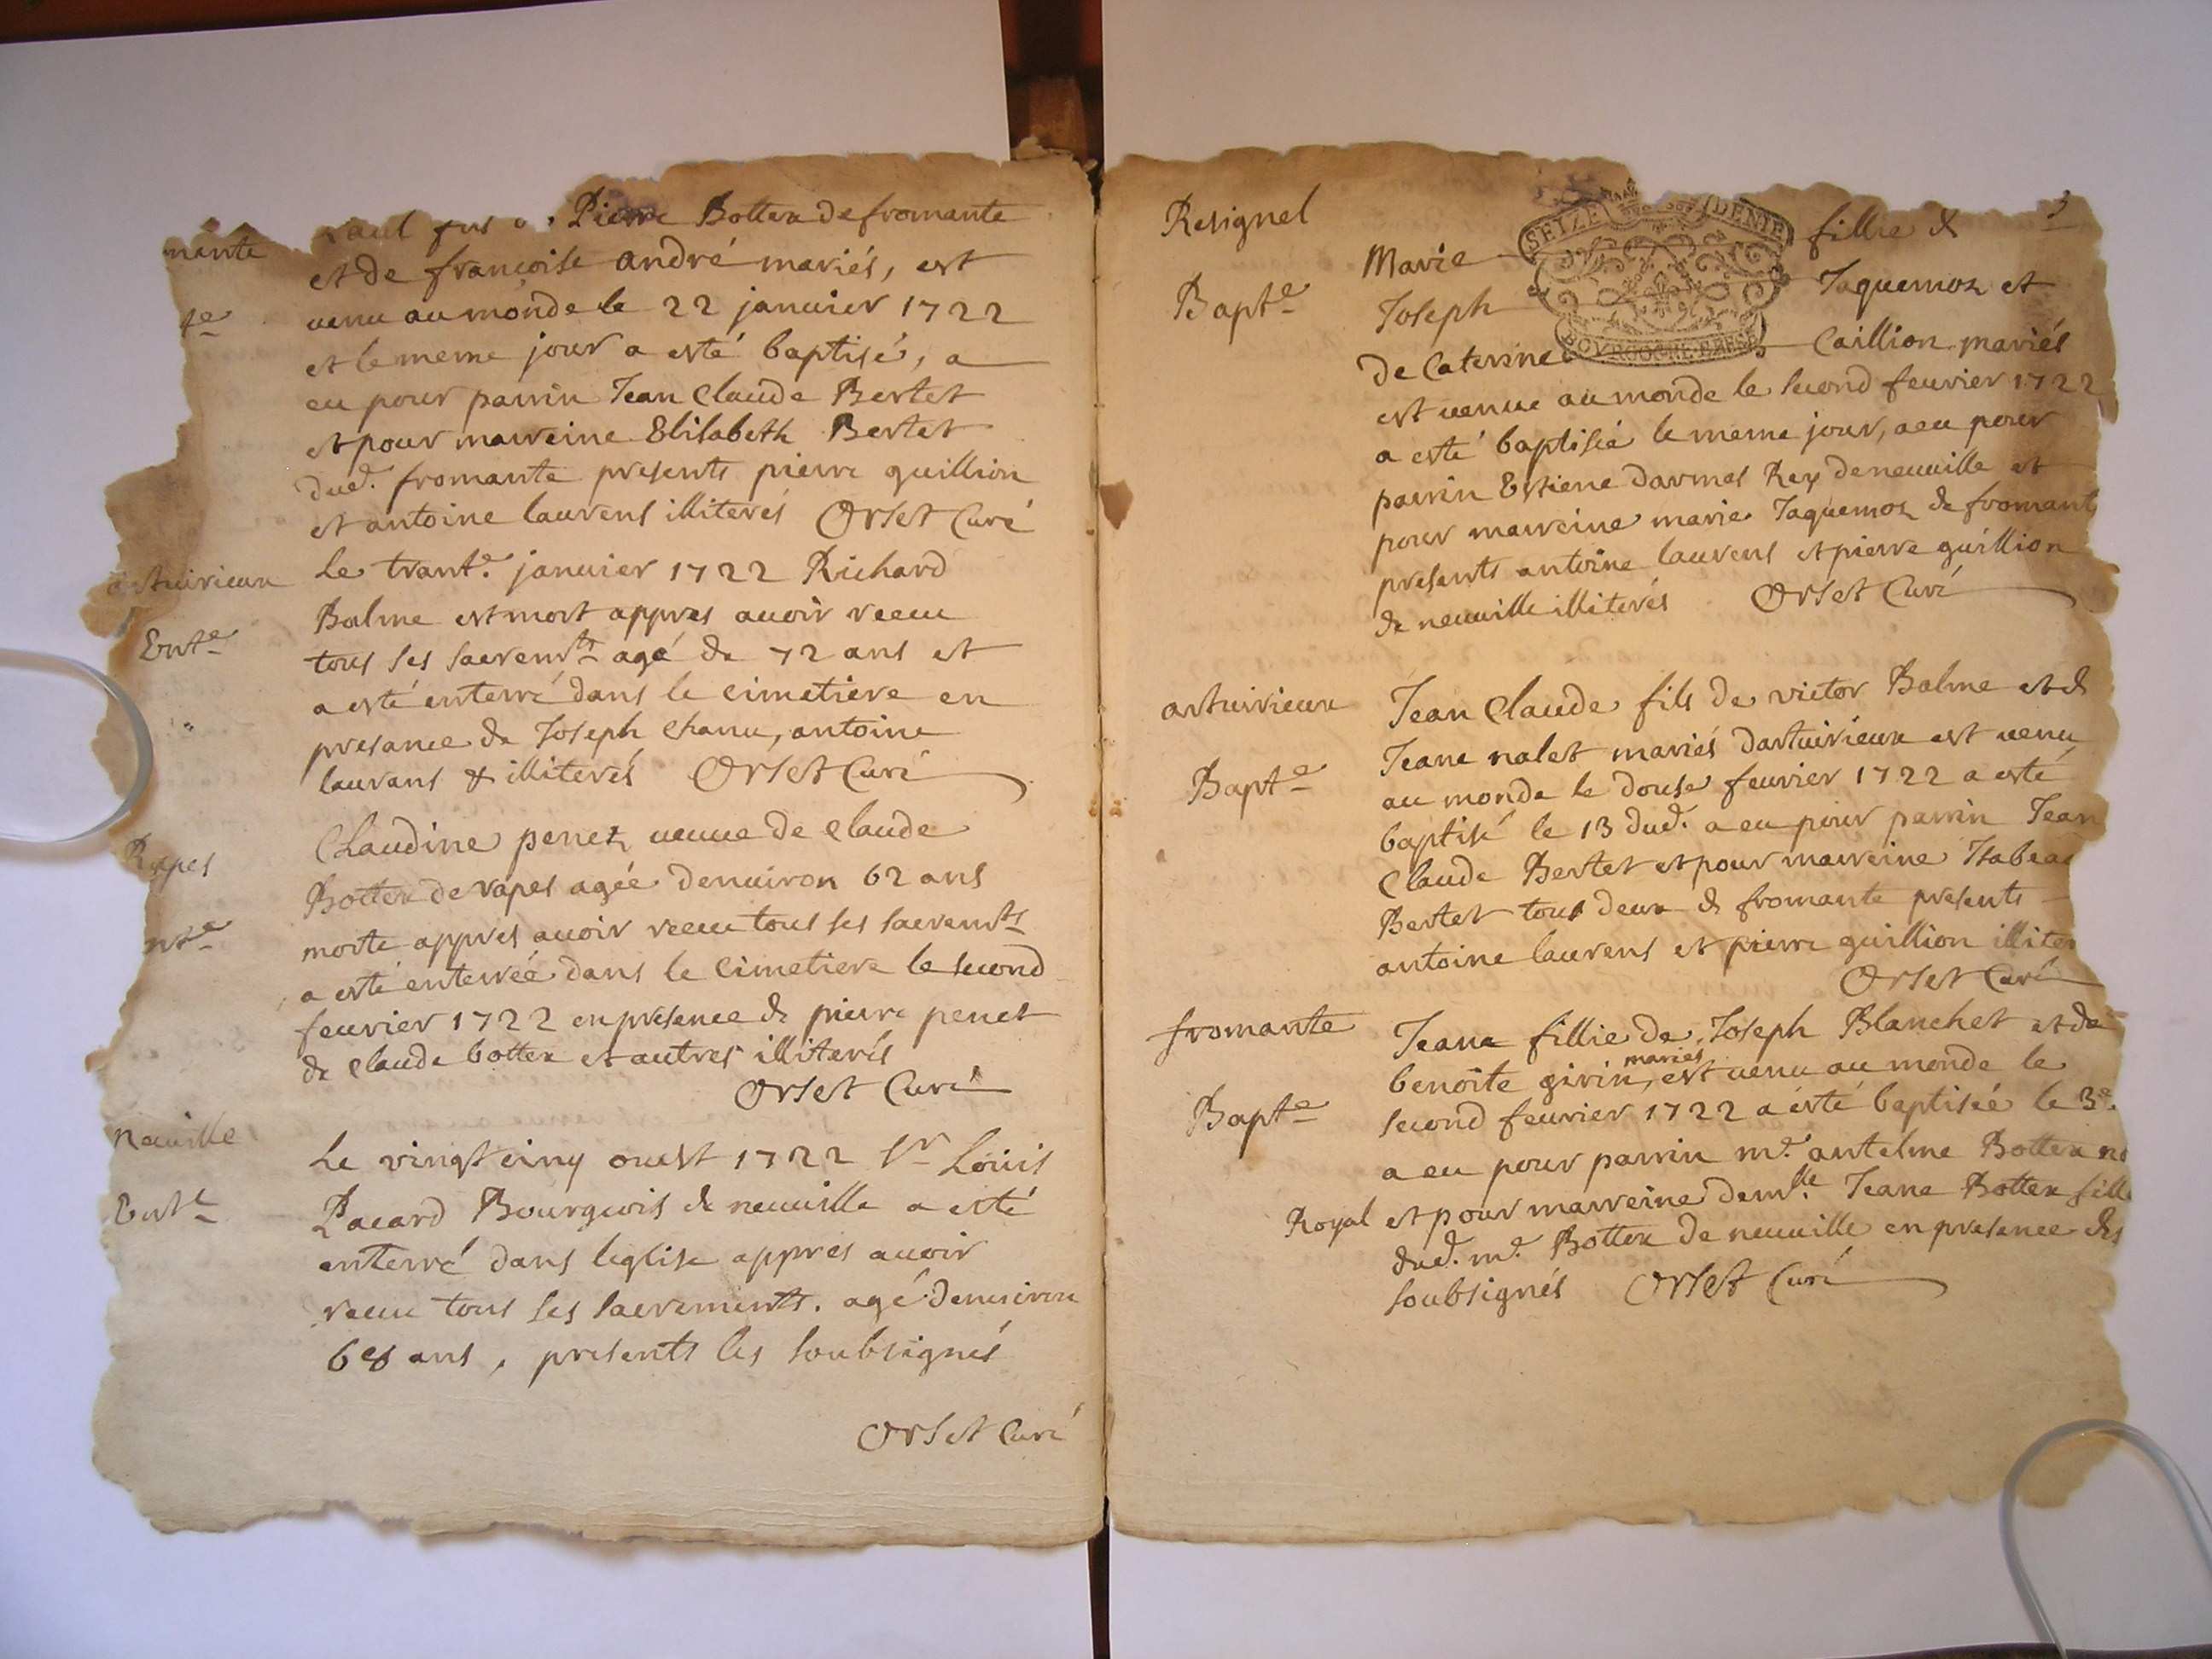 mante
Pierre Bottex de fromante
et de francoise andré mariés, est
venu au monde le 22 janvier 1722
te
et le meme jour a esté baptisé, a
eu pour parrin Jean Claude Bertet
et pour marreine Elisabeth Bertet
dud. fromante presents pierre guillion
et antoine laurens illiterés Orset Curé
artuirieux
Le trante. janvier 1722 Richard
Balme est mort appres avoir receu
Ente
tous ses sacremts agé de 72 ans et
a esté enterré dans le cimetiere en
presance de Joseph Chanu, antoine
laurans & illiterés Orset Curé
Rapes
Claudine penet veuve de Claude
Bottex de rapes agée denuiron 62 ans
nte
morte appres avoir receu tous ses sacremts
a esté enterrée dans le cimetiere le second
feurier 1722 en presence de pierre penet
de Claude bottex et autres illiterés
Orset Curé
Neuuille
Le vingt cinq oust 1722 Sr Louis
Enté
Pacard Bourgeois de neuuille a esté
enterré dans leglise appres avoir
receu tous ses sacrements. agé denuiron
68 ans, presents les soubsignés
Orset Curé
3
Resignel
SEIZE DENIE
Marie fillie de
Bapte
Joseph Jaquemoz et
BOVRGOGNE BRESSE
de Caterine Caillion mariés
est venue au monde le second feurier 1722
a esté baptisée le meme jour, a eu pour
parrin Estiene darmes Rey de neuuille et
pour marreine marie Jaquemoz de fromant
presents antoine laurens et pierre guillion
de neuuille illiterés Orset Curé
artuirieux
Jean Claude fils de victor Balme et de
Jeane nalet mariés dartuirieux est venu
Bapte
au monde le douse feurier 1722 a esté
baptisé le 13 dud. a eu pour parrin Jean
Claude Bertet et pour marreine Isabea
Bertet tous deux de fromante presents
antoine laurens et pierre guillion illiter
Orset Curé
fromante
Jeane fillie de Joseph Blanchet et de
mariés
benoite girin, est venu au monde le
Bapte
second feurier 1722 a esté baptisée le 3e.
a eu pour parrin me. antelme Bottex no
Royal et pour marreine demlle Jeane Bottex fille
dud. me. Bottex de neuuille en presance des
soubsignés Orset Curé